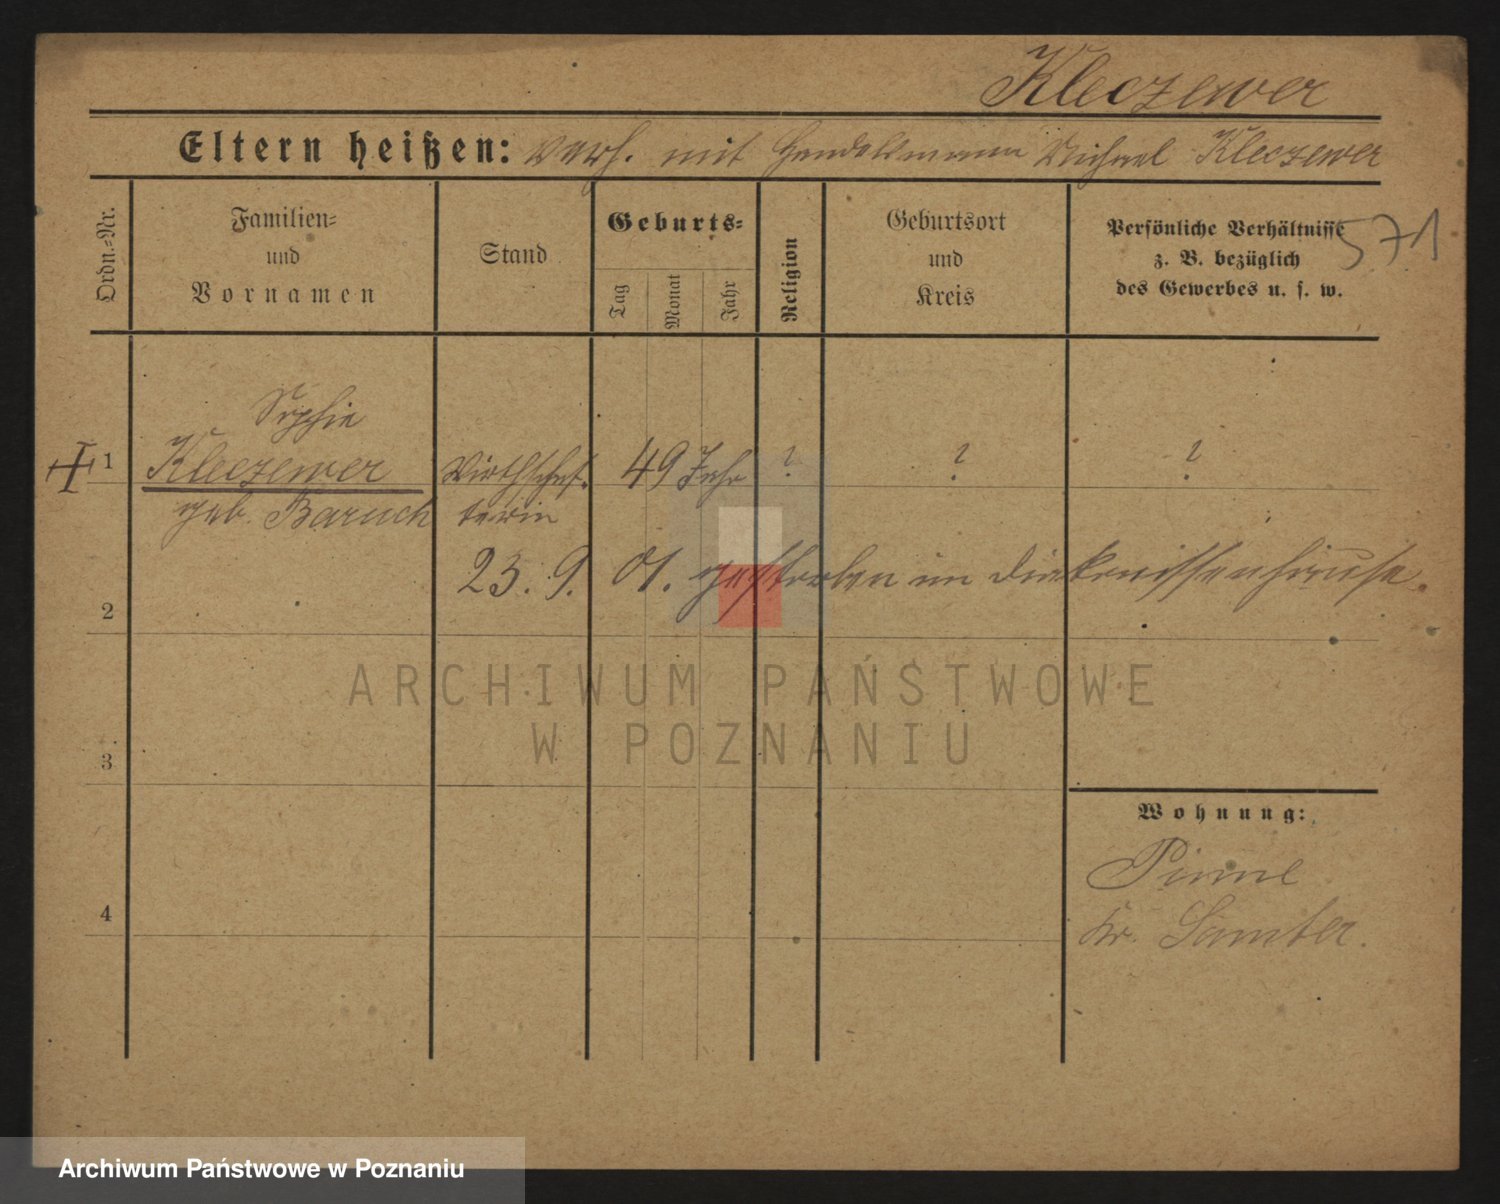 Kleczewer
Eltern heißen: verh. mit Handelsmann Michael Kleczewer
571
Ordn.-Nr.
Familien-
und
Vornamen
Stand
Geburts-
Tag
Monat
Jahr
Religion
Geburtsort
und
Kreis
Persönliche Verhältnisse
z. B. bezüglich
des Gewerbes u. s. w.
Sophie
1 Kleczewer Wirthschaf- 49 Jahr ? ? ?
geb. Baruch terin
23. 9. 01. gestorben im Diakonissenhause.
2
3
4
Wohnung:
Pinne
Kr. Samter.
ARCHIWUM PAŃSTWOWE
W POZNANIU
Archiwum Państwowe w Poznaniu